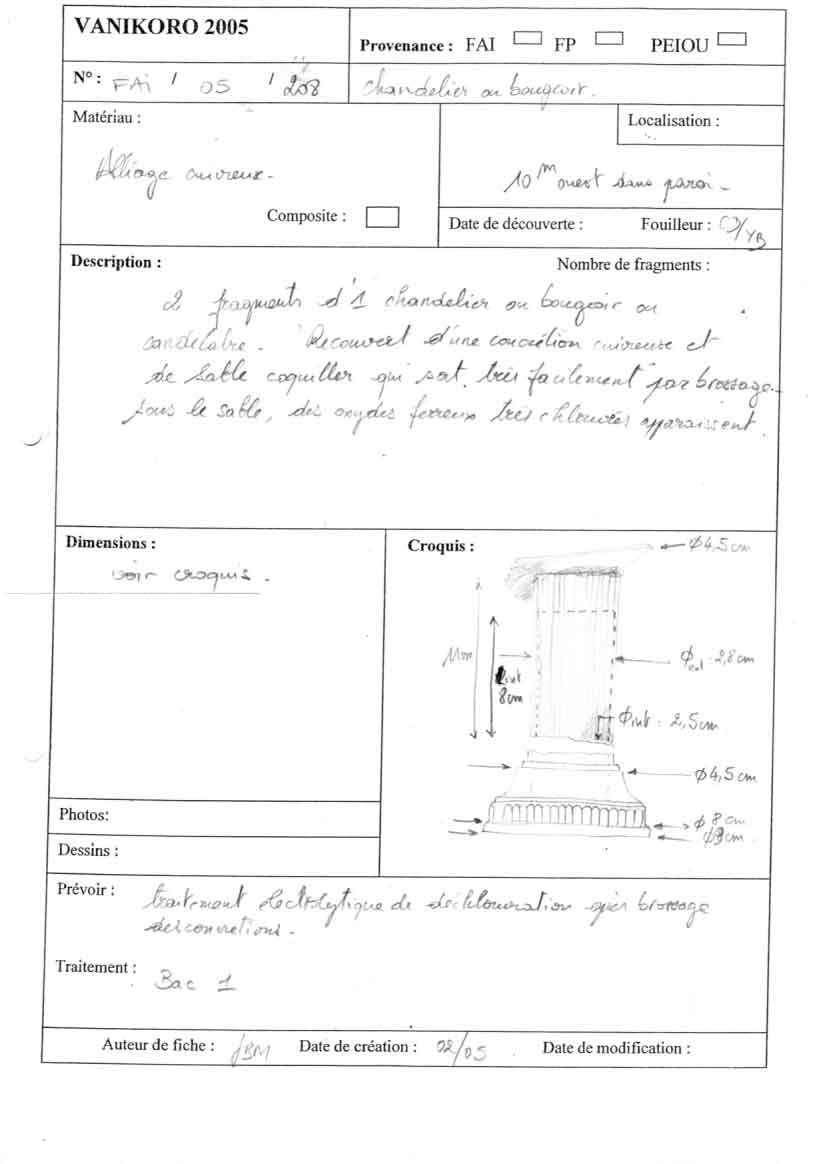 VANIKORO 2005
Provenance : FAI FP PEIOU
N° : FAi / 05 / 208
chandelier ou bougeoir.
Matériau :
Alliage cuivreux.
Composite :
Localisation :
10 m ouest dans paroi.
Date de découverte :
Fouilleur : /YB
Description :
Nombre de fragments :
2 fragments d'1 chandelier ou bougeoir ou
candelabre. Recouvert d'une concrétion cuivreuse et
de sable coquiller qui sort très facilement par brossage.
sous le sable, des oxydes ferreux très chlorurés apparaissent.
Dimensions :
voir croquis.
Croquis :
ϕ4,5 cm
11cm
ϕext = 2,8 cm
int
8cm
ϕint = 2,5cm
ϕ4,5 cm
ϕ 8 cm
ϕ9cm
Photos:
Dessins :
Prévoir :
traitement electrolytique de déchloruration après brossage
des concretions.
Traitement :
Bac 1
Auteur de fiche : JBM
Date de création : 02/05
Date de modification :